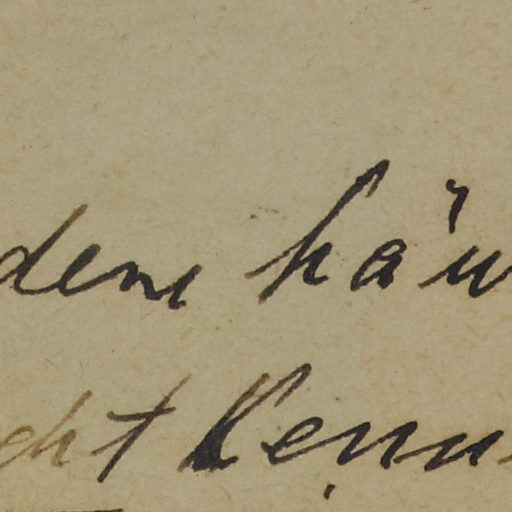 dem häu
cht Kenn